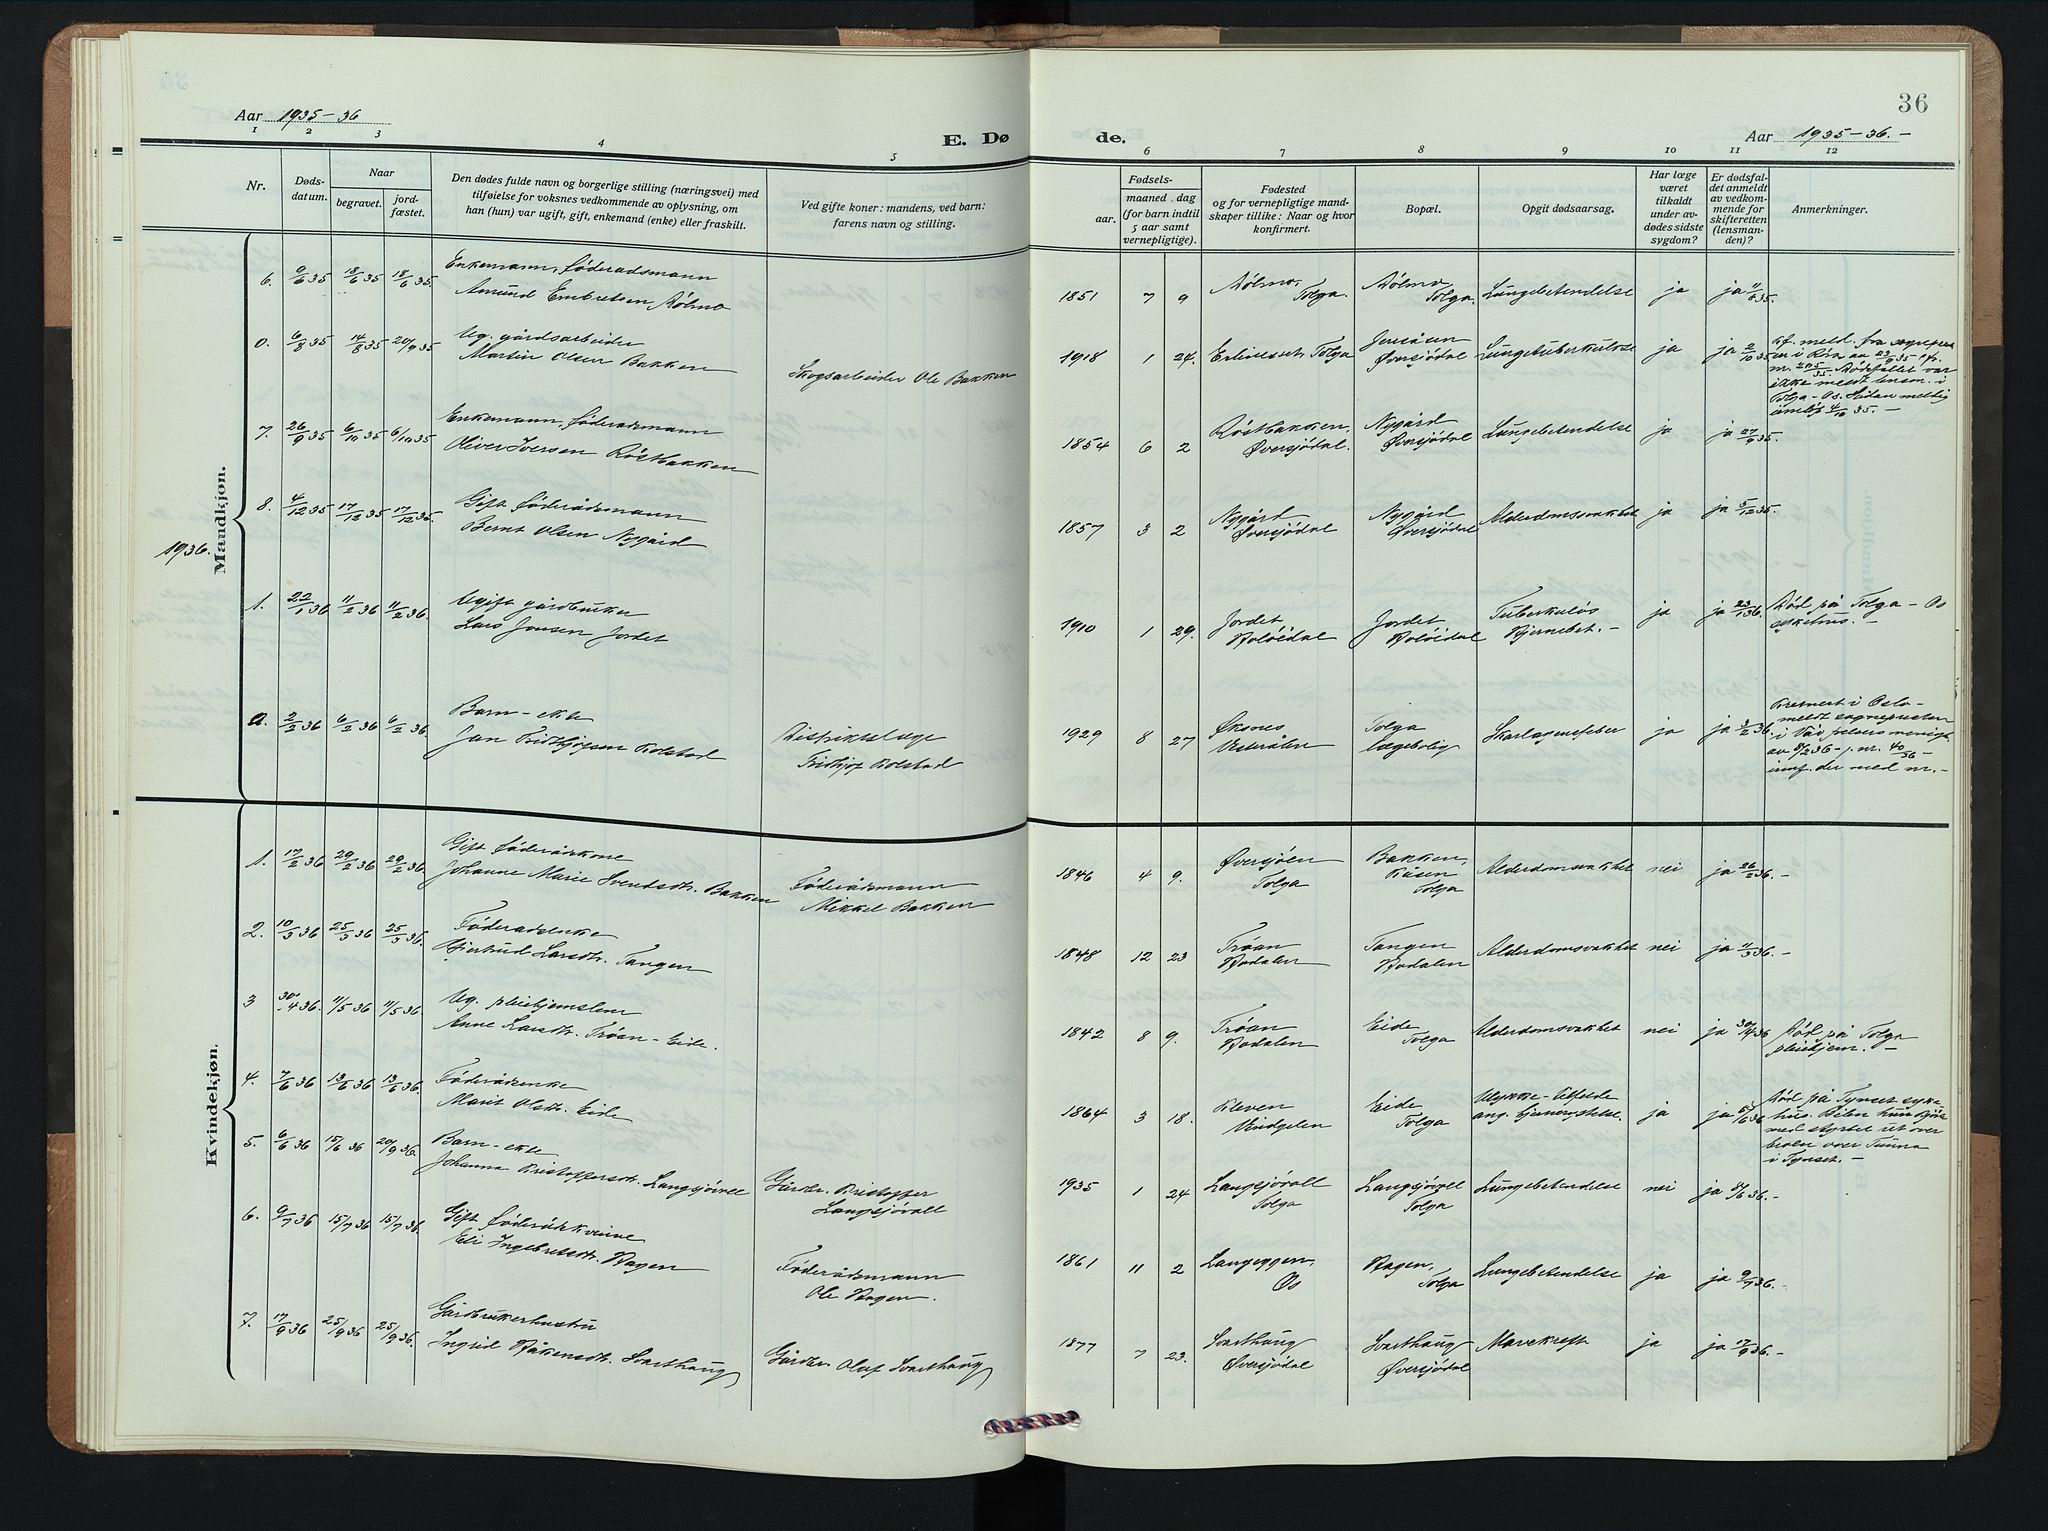 Aar 1935-36
E. Dø
1 2 3 4 5
Nr.
Døds-
datum.
Naar
begravet.
jord-
fæstet.
Den dødes fulde navn og borgerlige stilling (næringsvei) med
tilføielse for voksnes vedkommende av oplysning, om
han (hun) var ugift, gift, enkemand (enke) eller fraskilt.
Ved gifte koner: mandens, ved barn:
farens navn og stilling.
Mandkjøn.
6. 9/6 35 18/6 35 18/6 35 Enkemann, føderadsmann
Amund Embretsen Hølmo
0. 6/8 35 14/8 35 20/9 35 Ug. gårdsarbeider
Martin Olsen Bakken
Skogsarbeider Ole Bakken
7. 26/9 35 6/10 35 6/10 35 Enkemann, føderadsmann
Oliver Iversen Røstbakken
8. 4/12 35 17/12 35 17/12 35. Gift føderådsmann
Bernt Olsen Nygård
1936.
1. 22/1 36 11/2 36 11/2 36. Ugift gårdbruker
Lars Jonsen Jordet
0. 2/2 36 6/2 36 6/2 36. Barn - ekte
Jan Fridthjofsen Kolstad
Distriktslæge
Fridthjof Kolstad
Kvindekjøn.
1. 17/2 36 29/2 36 29/2 36. Gift føderådskone
Johanne Marie Svendsdtr. Bakken
Føderådsmann
Mikkel Bakken
2. 10/3 36 25/3 36 25/3 36. Føderadsenke
Gjertrud Larsdtr. Tangen
3 30/4 36. 11/5 36 11/5 36. Ug. pleiehjemslem
Anne Larsdtr. Trøan - Eide.
4. 7/6 36 13/6 36 13/6 36. Føderådsenke
Marit Olsdtr. Eide
5. 6/6 36 15/6 36 20/9 36. Barn - ekte
Johanna Kristoffersdtr. Langsjøvoll
Gårdbr. Kristoffer
Langsjøvoll
6. 9/7 36 15/7 36 15/7 36. Gift føderådskvinne
Eli Ingebretsdtr. Hagen
Føderådsmann
Ole Hagen.
7. 17/9 36 25/9 36 25/9 36. Gårdbrukerhustru
Ingrid Håkensdtr. Svarthaug
Gårdbr. Olaf Svarthaug
36
de.
Aar 1935-36.-
6 7 8 9 10 11 12
Fødsels-
aar.
maaned. dag
(for barn indtil
5 aar samt
vernepligtige).
Fødested
og for vernepligtige mand-
skaper tillike: Naar og hvor
konfirmert.
Bopæl.
Opgit dødsaarsag.
Har læge
været
tilkaldt
under av-
dødes sidste
sygdom?
Er dødsfal-
det anmeldt
av vedkom-
mende for
skifteretten
(lensman-
den)?
Anmerkninger.
1851 7 9 Hølmo, Tolga. Hølmo Tolga. Lungebetendelse ja ja 11/6 35.
1918 1 24. Erlienset, Tolga Jensåsen Øversjødal Lungetuberkulose ja ja 2/10 35
Kf. meld. fra sogнepres-
ten i Røra av 23/9 35 jr.
nr. 205/35. Dødsfallet var
ikke meldt lensm. i
Tolga - Os. Sidan meldig
4/10 35. -
1854 6 2 Røstbakken, Øversjødal. Nygård Øversjødal Lungebetendelse ja ja 27/9 35.
1857 3 2 Nygård Øversjødal Nygård Øversjødal Alderdomssvakhet ja ja 5/12 35.
1910 1 29. Jordet Holøidal Jordet Holøidal Tuberkuløs Hjernebet. - ja ja 23/1 36.
Død på Tolga - Os
sykehus. -
1929 8 27 Øksnes Vesterålen Tolga lægebolig Skarlagensfeber ja ja 3/2 36.
Kremert i Oslo -
meldt sognepresten
i Vår frelsers menigh.
av 8/2 36 - j. nr. 40/36
innf. der med nr. -
1846 4 9. Øversjøen Tolga Bakken, Kåsen Tolga Alderdomssvakhet nei ja 26/2 36. -
1848 12 23 Trøan Hodalen Tangen Hodalen Alderdomssvakhet nei ja 11/3 36. -
1842 8 9. Trøan Hodalen Eide Tolga Alderdomssvakhet nei ja 30/4 36
Død på Tolga
pleiehjem. -
1864 3 18. Kleven Vingelen Eide Tolga Ulykke-tilfelde ang. hjernerystelse. ja ja 8/6 36
Død på Tynset syke-
hus. Bilen hun kjørte
med styrtet ut over
broen over Tunna
i Tynset. -
1935 1 24 Langsjøvoll Tolga Langsjøvoll Tolga Lungebetendelse nei ja 8/6 36. -
1861 11 2 Langeggen, Os Hagen, Tolga Lungebetendelse ja ja 9/7 36. -
1877 7 23. Svarthaug Øversjødal Svarthaug Øversjødal Mavekreft ja ja 17/9 36. -